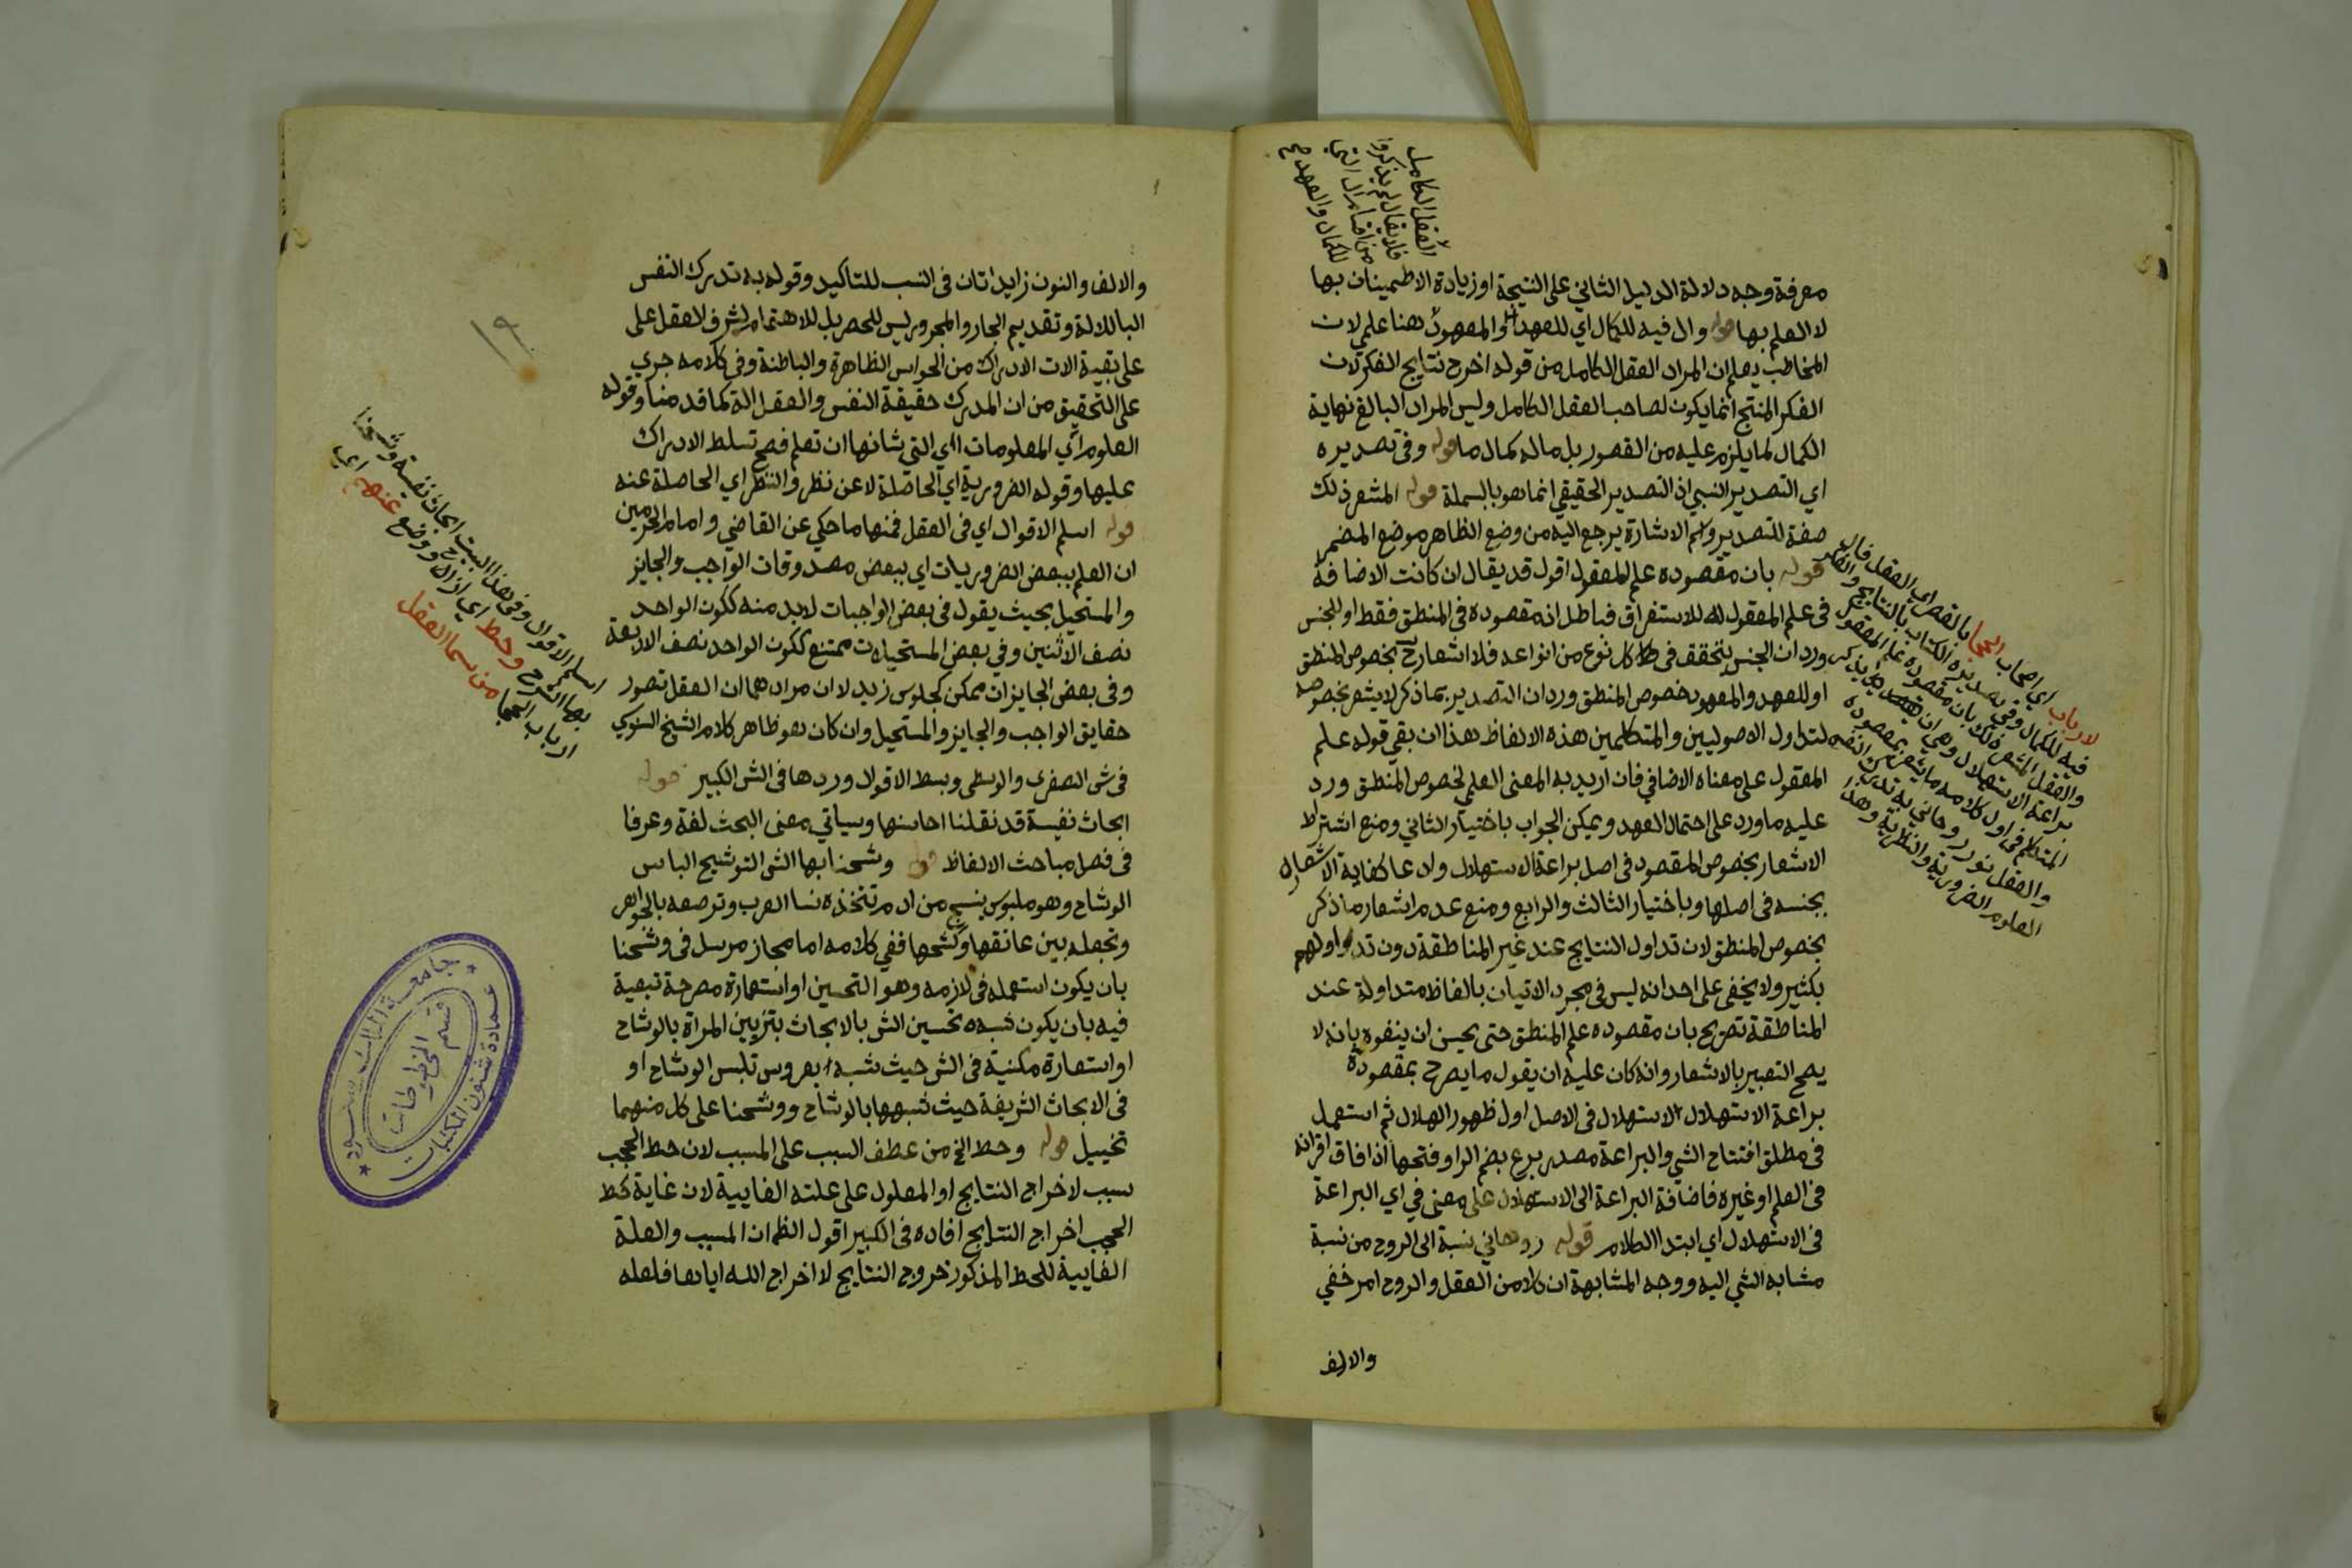 معرفة وجه دلالة الدليل الثاني على النتيجة او زيادة الاطمينان بها
لا العلم بها قوله وال فيه للكمال اي للعهد والمعهود هنا علمي لان
المخاطب يعلم ان المراد العقل الكامل من قوله اخرج نتايج الفكر لان
الفكر المنتج انما يكون لصاحب العقل الكامل وليس المراد البالغ نهاية
الكمال لما يلزم عليه من القصور بل ماله كمال ما قوله وفى تصديره
اي التصدير النسبي اذ التصدير الحقيقي انما هو بالبسملة قوله المشعر ذلك
صفة للتصدير واسم الاشارة يرجع اليه من وضع الظاهر موضع المضمر
قوله بان مقصوده علم المعقول اقول قد يقال ان كانت الاضافة
فى علم المعقول للاستغراق فباطل انه مقصوده فى المنطق فقط او للجنس
ورد ان الجنس يتحقق فى كل نوع من انواعه فلا اشعار بخصوص المنطق
او للعهد والمعهود خصوص المنطق ورد ان التصدير بما ذكر لا يشعر بخصوصه
لتداول الاصوليين والمتكلمين هذه الالفاظ هذا ان بقي قوله علم
المعقول على معناه الاضافي فان اريد به المعنى العلمي لخصوص المنطق ورد
عليه ما ورد على احتمال العهد ويمكن الجواب باختيار الثاني ومنع اشتراط
الاشعار بخصوص المقصود فى اصل براعة الاستهلال وادعا كفاية الاشعار
بجنسه فى اصلها وباختيار الثالث والرابع ومنع عدم اشعار ما ذكر
بخصوص المنطق لان تداول النتايج عند غير المناطقة دون تداولهم
بكثير ولا يخفى على احد انه ليس فى مجرد الاتيان بالفاظ متداولة عند
المناطقة تصريح بان مقصوده علم المنطق حتى يحسن ان يتفوه بانه لا
يصح التعبير بالاشعار وانه كان عليه ان يقول ما يصرح بمقصوده
براعة الاستهلال الاستهلال فى الاصل اول ظهور الهلال ثم استعمل
فى مطلق افتتاح الشي والبراعة مصدر برع بضم الرا وفتحها اذا فاق اقرانه
فى العلم او غيره فاضافة البراعة الى الاستهلال على معنى في اي البراعة
فى الاستهلال اي ابتدا الكلام قوله روحاني نسبة الى الروح من نسبة
مشابه الشي اليه ووجه المشابهة ان كلا من العقل والروح امر خفي
والالف
العقل الكامل
فلا يقال لم يذكروا
من اقسام ال التي
للكمال والعهد صح
لارباب اي اصحاب الحجا بالقصر اي العقل فال
فيه للكمال وفى تصديره الكتاب بالنتايج والفكر
والعقل المشعر ذلك بان مقصوده علم المعقول
براعة الاستهلال وهي ان يذكر
المتكلم فى اول كلامه ما يشعر بمقصوده
والعقل نور روحاني به تدرك النفس
العلوم الضرورية والنظرية وهذا
والالف والنون زايدتان فى النسب للتاكيد وقوله به تدرك النفس
البا للالة وتقديم الجار والمجرور ليس للحصر بل للاهتمام لشرف العقل على
على بقية الات الادراك من الحواس الظاهرة والباطنة وفى كلامه جري
على التحقيق من ان المدرك حقيقة النفس والعقل الة كما قدمنا وقوله
العلوم اي المعلومات اي التي شانها ان تعلم فصح تسلط الادراك
عليها وقوله الضرورية اي الحاصلة لا عن نظر والنظر اي الحاصلة عنه
قوله اسلم الاقوال اي فى العقل فمنها ما حكي عن القاضي وامام الحرمين
ان العلم ببعض الضروريات اي ببعض مصدوقات الواجب والجايز
والمستحيل بحيث يقول فى بعض الواجبات لابد منه ككون الواحد
نصف الاثنين وفي بعض المستحيلات ممتنع ككون الواحد نصف الاربعة
وفى بعض الجايزات ممكن كجلوس زيد لا ان مرادهما ان العقل تصور
حقايق الواجب والجايز والمستحيل وان كان هو ظاهر كلام الشيخ السنوسي
فى ش الصغرى والوسطى وبسط الاقوال وردها فى الش الكبير قوله
ابحاث نفيسة قد نقلنا احاسنها وسياتي معنى البحث لغة وعرفا
فى فصل مباحث الالفاظ قوله وشحنا بها الش التوشيح الباس
الوشاح وهو ملبوس ينسج من ادم تتخذه نسا العرب وترصعه بالجواهر
وتجعله بين عاتقها وكشحها ففي كلامه اما مجاز مرسل فى وشحنا
بان يكون استعمله فى لازمه وهو التحسين او استعارة مصرحة تبعية
فيه بان يكون شبه تحسين الش بالابحاث بتزيين المراة بالوشاح
او استعارة مكنية فى الش حيث شبه بعروس تلبس الوشاح او
فى الابحاث الشريفة حيث شبهها بالوشاح ووشحنا على كل منهما
تخييل قوله وحط الخ من عطف السبب على المسبب لان حط الحجب
سبب لاخراج النتايج او المعلول على علته الغايية لان غاية حط
الحجب اخراج النتايج افاده فى الكبير اقول الظ ان المسبب والعلة
الغايية للحط المذكور خروج النتايج لا اخراج الله اياها فلعله
١٩
اسلم الاقوال وفى هذا البيت ابحاث نفيسة وشحنا
بها الشرح وحط اي ازال ووضع عنهم اي
ارباب الحجا من سما العقل
جامعة الملك سعود
عمادة شئون المكتبات
قسم المخطوطات